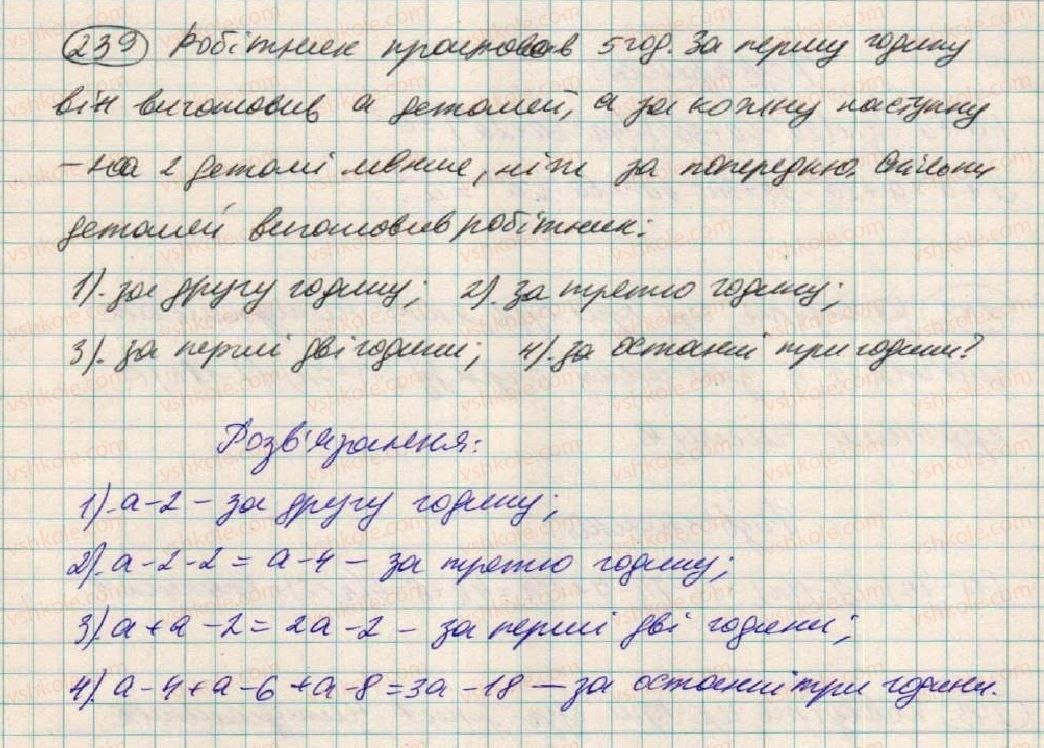 239 Робітник працював 5 год. За першу годину
він виготовив а деталей, а за кожну наступну
– на 2 деталі менше, ніж за попередню. Скільки
деталей виготовив робітник:
1). за другу годину; 2). за третю годину;
3). за перші дві години; 4). за останні три години?
Розв'язання:
1). а - 2 – за другу годину;
2). а - 2 - 2 = а - 4 – за третю годину;
3). а + а - 2 = 2а - 2 – за перші дві години;
4). а - 4 + а - 6 + а - 8 = 3а - 18 – за останні три години.